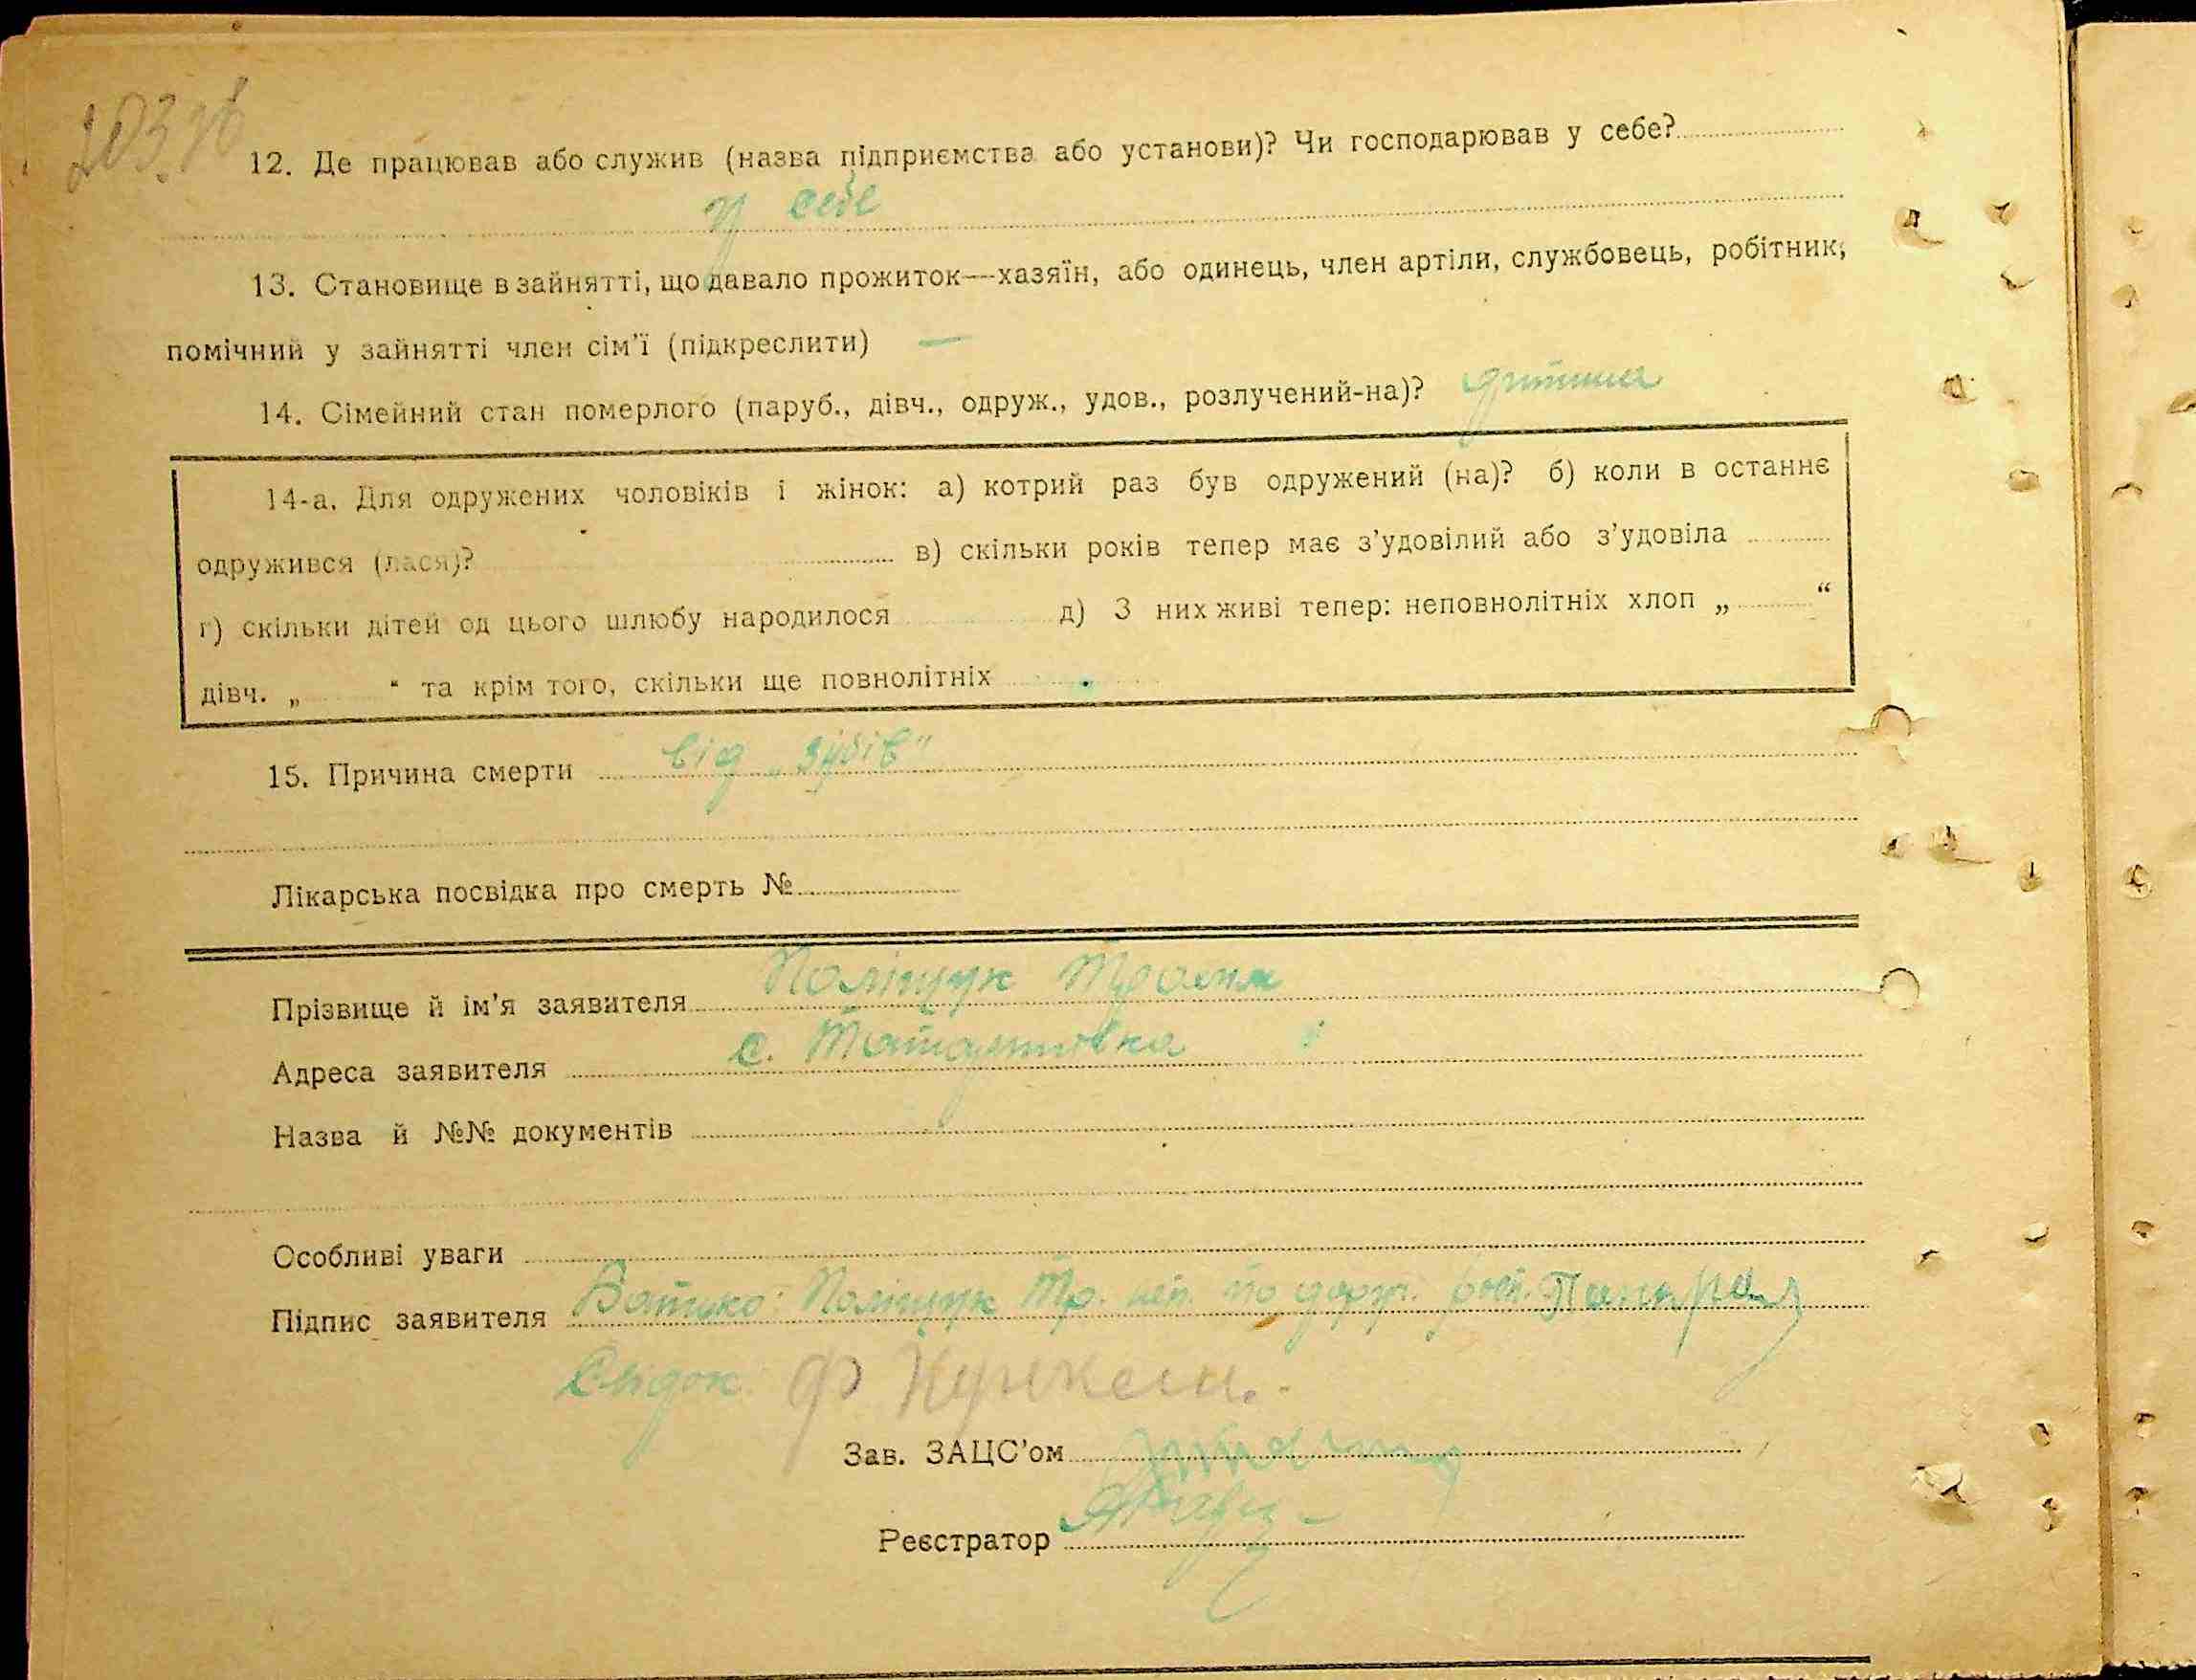 203 зв
12. Де працював або служив (назва підприємства або установи)? Чи господарював у себе?
у себе
13. Становище в зайнятті, що давало прожиток—хазяїн, або одинець, член артіли, службовець, робітник,
помічний у зайнятті член сім'ї (підкреслити) —
14. Сімейний стан померлого (паруб., дівч., одруж., удов., розлучений-на)? дитина
14-а. Для одружених чоловіків і жінок: а) котрий раз був одружений (на)? б) коли в останнє
одружився (лася)? в) скільки років тепер має з'удовілий або з'удовіла
г) скільки дітей од цього шлюбу народилося д) З них живі тепер: неповнолітніх хлоп „ “
дівч. „ “ та крім того, скільки ще повнолітніх
15. Причина смерти від „зубів"
Лікарська посвідка про смерть №
Прізвище й ім'я заявителя Поліщук
Адреса заявителя с.
Назва й №№ документів
Особливі уваги
Підпис заявителя Батько: Поліщук Тр. неп. по
Свідок: Ф
Зав. ЗАЦС'ом
Реєстратор